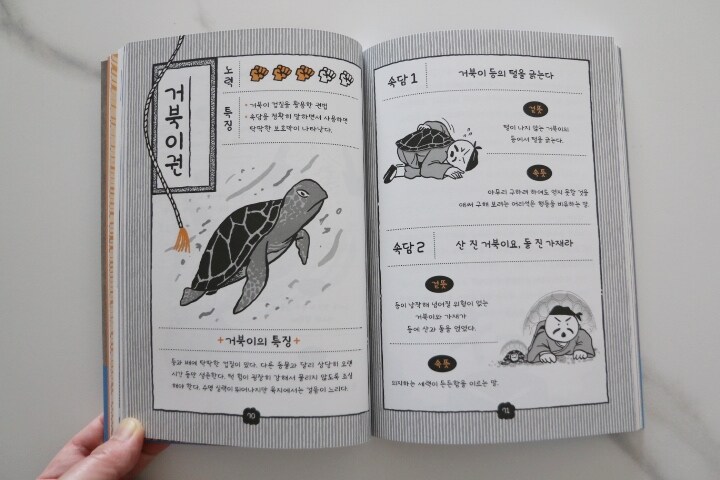 거북이권
노력
특징
• 거북이 껍질을 활용한 권법
• 속담을 정확히 말하면서 사용하면
딱딱한 보호막이 나타난다.
+거북이의 특징+
등과 배에 딱딱한 껍질이 있다. 다른 동물과 달리 상당히 오랜
시간 동안 생존한다. 턱 힘이 굉장히 강해서 물리지 않도록 조심
해야 한다. 수영 실력이 뛰어나지만 육지에서는 걸음이 느리다.
70
속담 1
거북이 등의 털을 긁는다
겉뜻
털이 나지 않는 거북이의
등에서 털을 긁는다.
속뜻
아무리 구하려 하여도 얻지 못할 것을
애써 구해 보려는 어리석은 행동을 비유하는 말.
속담 2
산 진 거북이요, 돌 진 가재라
겉뜻
등이 납작해 넘어질 위험이 없는
거북이와 가재가
등에 산과 돌을 얹었다.
속뜻
의지하는 세력이 든든함을 이르는 말.
71